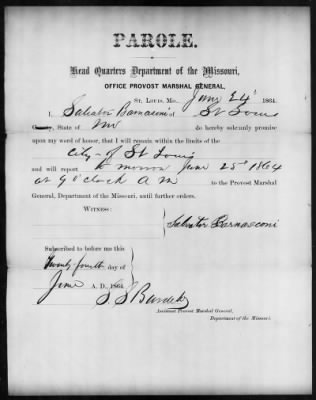 PAROLE.
Head Quarters Department of the Missouri,
OFFICE PROVOST MARSHAL GENERAL,
ST. LOUIS, MO., June 24th 1864.
I, Salvator Barnasconi of St Louis
County, State of Mo do hereby solemnly promise
upon my word of honor, that I will remain within the limits of the
City of St Louis
and will report to morrow June 25th 1864
at 9 o'clock A M to the Provost Marshal
General, Department of the Missouri, until further orders.
WITNESS:
Salvator Barnasconi
Subscribed to before me this
Twenty-fourth day of
June A. D., 1864
S S Burdett
Assistant Provost Marshal General,
Department of the Missouri.